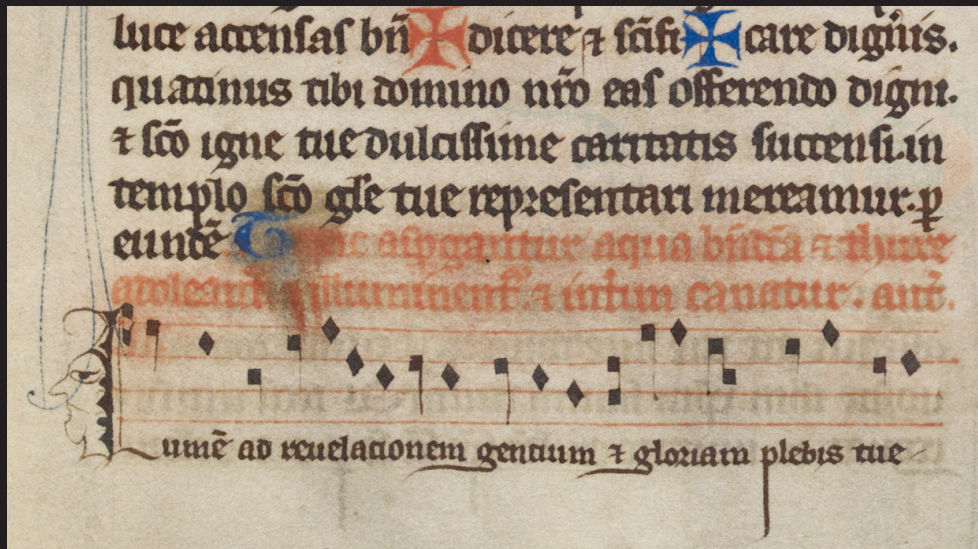 luce accensas bn̄ ✠ dicere ⁊ sc̄ifi ✠ care digneris.
quatinus tibi domino nr̄o eas offerendo digni.
⁊ sc̄o igne tue dulcissime caritatis succensi. in
templo sc̄o gl̄e tue representari mereamur. ꝑ
eundē aspgantur aqua bn̄dc̄a ⁊ thure
⁊ canatur. ant̄.
Lumē ad reuelationem gentium ⁊ gloriam plebis tue